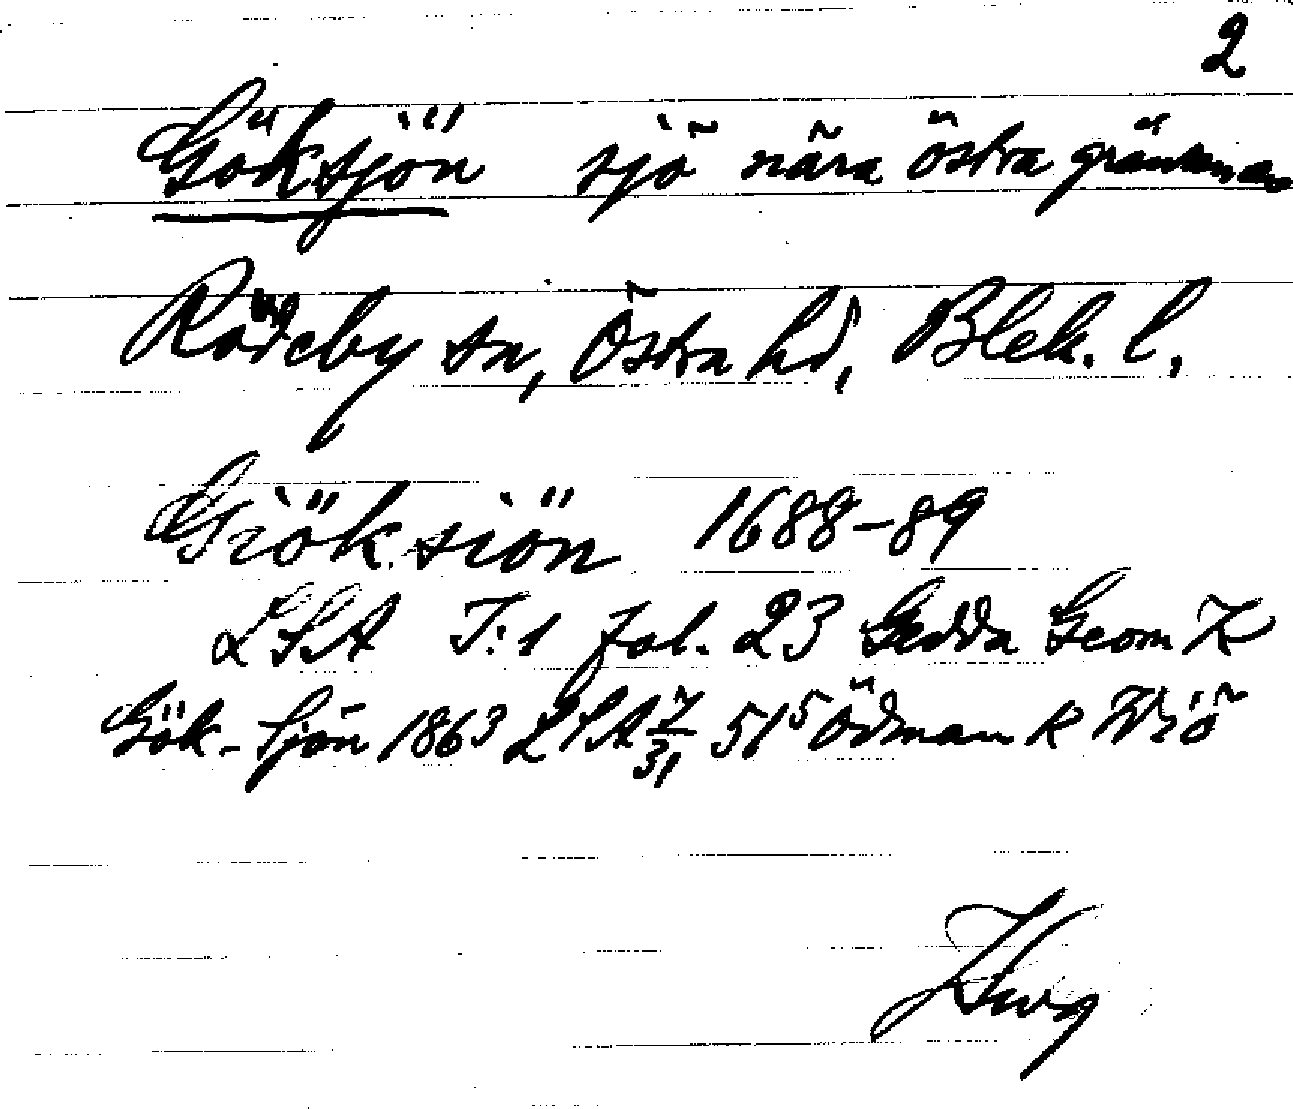 2
Göksjön sjö nära östra gränsen av
Rödeby sn, Östra hd, Blek. l.
Giöksiön 1688-89
LSA I:1 fol. 23 Gedda Geom K
Gök-Sjön 1863 LSA 7/31 51⁵ Ödman K